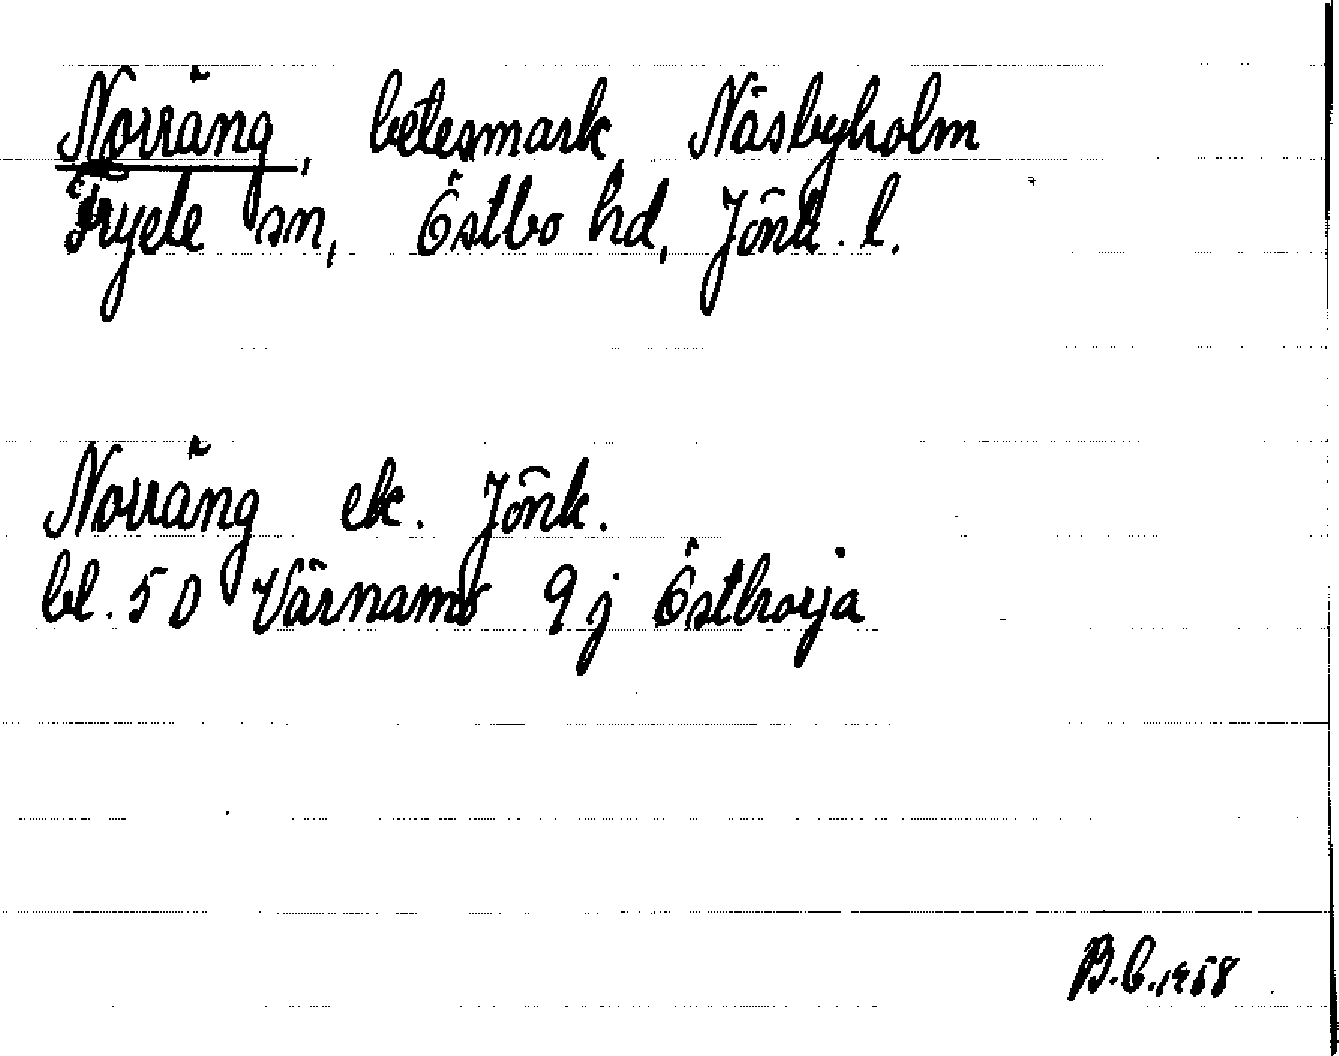 Norräng, betesmark, Näsbyholm
Fryele sn, Östbo hd, Jönk. l.
Norräng ek. Jönk.
bl. 5 D Värnamo 9 j Östhorja
B.C. 1958